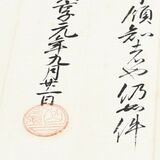 領知者也仍如件
享元年九月廿一日